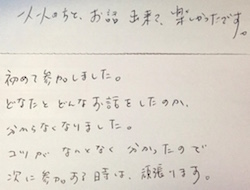 一人一人と、お話出来て、楽しかったです。
初めて参加しました。
どなたとどんなお話をしたのか、
分からなくなりました。
コツがなんとなく分かったので
次に参加する時は、頑張ります。